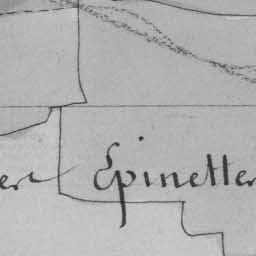 er Epinetter